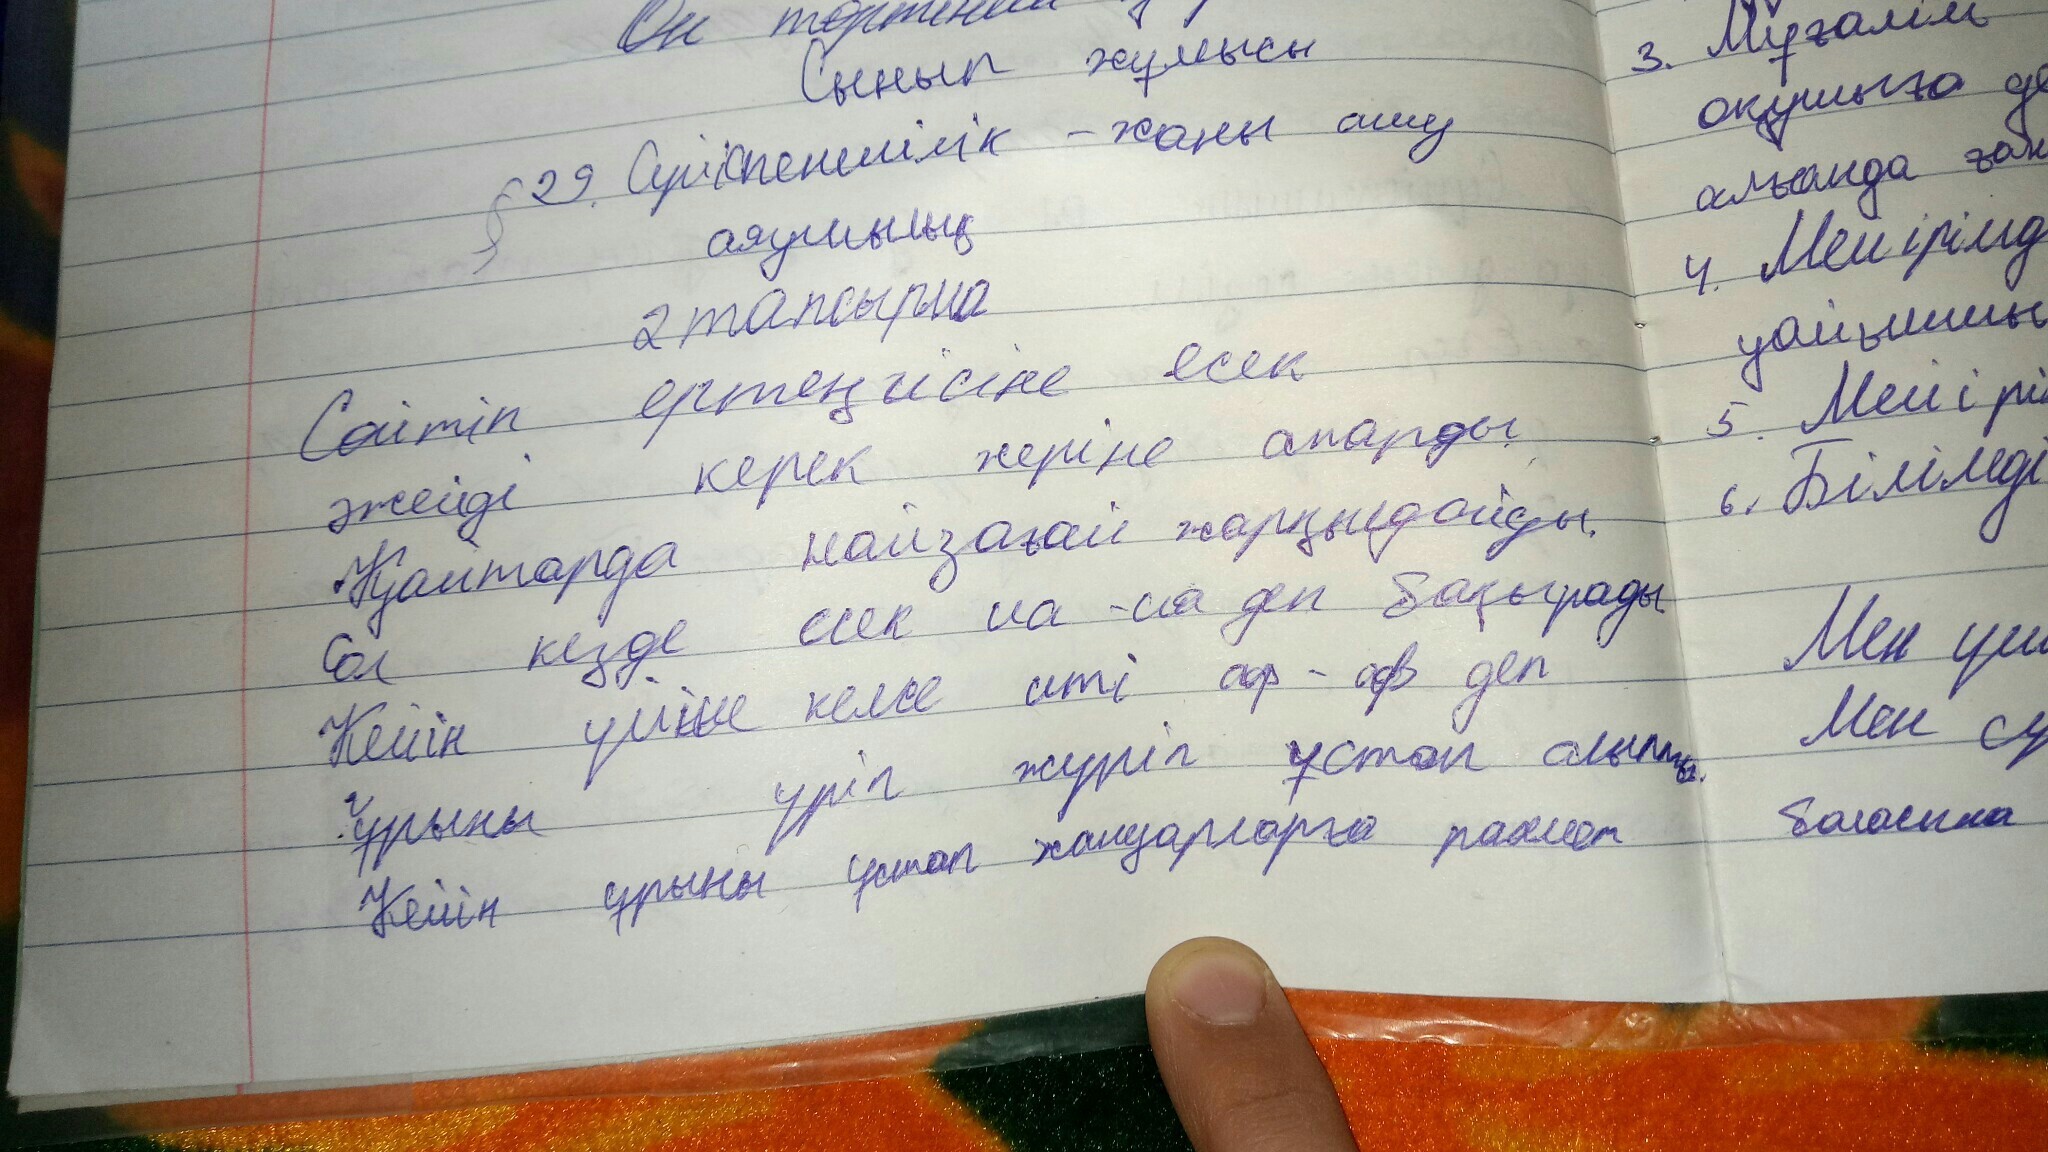 Он төртінші
Сынып жұмысы
§ 29. Сүйіспеншілік - жаны ашу
аяушылық
2 тапсырма
Сөйтіп ертеңгісіне есек
әжейді керек жеріне апарды.
Қайтарда найзағай жарқылдайды.
Сол кезде есек иа - иа деп бақырады
Кейін үйіне келсе иті аф - аф деп
Ұрыны үріп жүріп ұстап алыпты.
Кейін ұрыны ұстап жануарларға рахмет
3. Мұғалім
оқушыға
алғанда
4. Мейірімд
уайымшы
5. Мейірі
6. Білімді
Мен
Мен
баласына